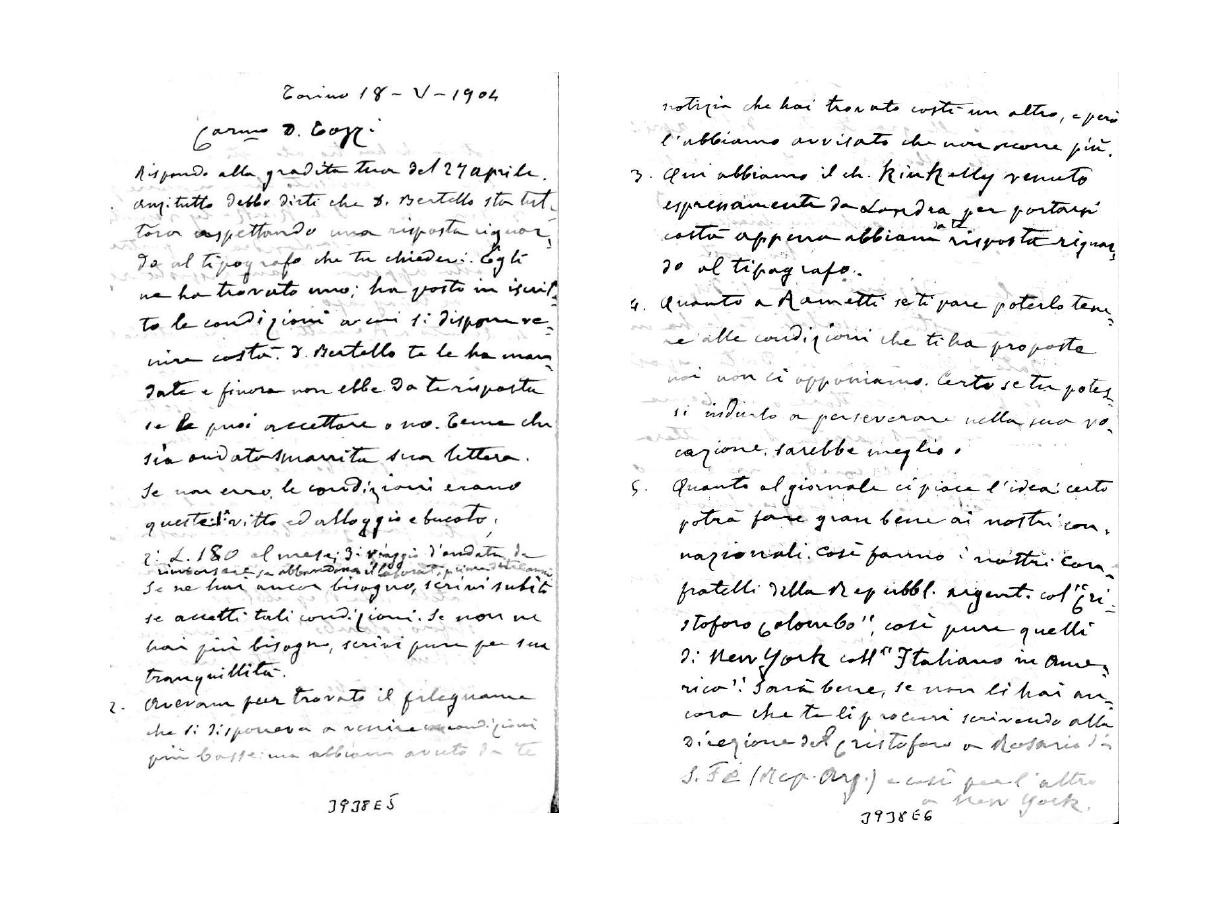 Torino 18 - V - 1904
Carmo D. Cozzi
Rispondo alla gradita tua del 27 aprile.
anzitutto debbo dirti che D. Bertello sta tut-
tora aspettando una risposta riguar-
do al tipografo che tu chiedevi. Egli
ne ha trovato uno; ha posto in iscrit-
to le condizioni a cui si dispone ve-
nire costà. D. Bertello te le ha man
date e finora non ebbe da te risposta
se le puoi accettare o no. Teme che
sia andata smarrita sua lettera.
Se non erro, le condizioni erano
queste: 1° vitto ed alloggio e bucato,
2: L. 180 al mese; 3: viaggio d'andata da
rimborsare se abbandona il lavoro prima
Se ne hai ancor bisogno, scrivi subito
se accetti tali condizioni. Se non ne
hai più bisogno, scrivi pure per sua
tranquillità.
2. Avevam pur trovato il falegname
che si disponeva a venire condizioni
più basse: ma abbiam avuto da te
3938E5
notizia che hai trovato costì un altro, e però
l'abbiamo avvisato che non occorre più.
3. Qui abbiamo il ch. Kinkelly venuto
espressamente da Londra per portarsi
costà appena abbiam risposta riguar-
do al tipografo.
4. Quanto a Rametti se ti pare poterlo tene-
re alle condizioni che ti ha proposte
noi non ci opponiamo. Certo se tu potes-
si indurlo a perseverare nella sua vo-
cazione, sarebbe meglio.
5. Quanto al giornale ci piace l'idea: certo
potrà fare gran bene ai nostri con-
nazionali. Così fanno i nostri con-
fratelli della Repubbl. argent. col "Cri-
stoforo Colombo", così pure quelli
di New York coll' "Italiano in Ame-
rica". Sarà bene, se non li hai an-
cora che te li procuri scrivendo alla
Direzione del Cristoforo a Rosario di
S. Fè (Rep. Arg.) e così per l'altro
a New York.
3938E6